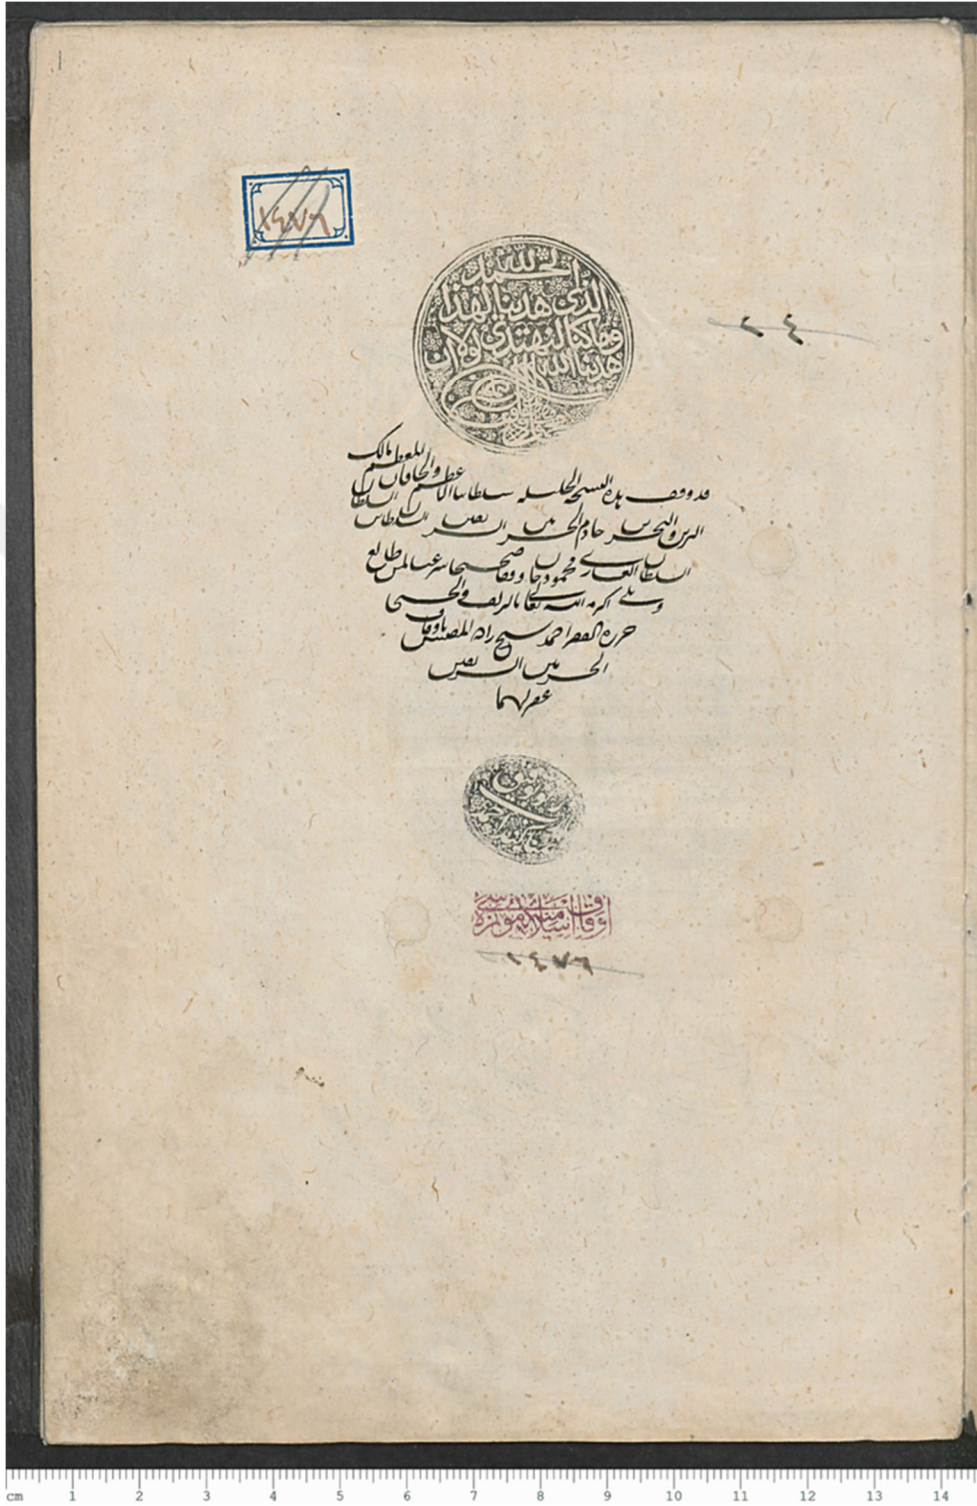 ١
١٤٧٦
الحمد لله
الذي هدينا لهذا
وما كنا لنهتدي لولا ان
هدينا الله
٢٤
قد وقف هذه النسخة الجليلة سلطاننا الاعظم والخاقان المعظم مالك
البرين والبحرين خادم الحرمين الشريفين السلطان بن السلطان
السلطان الغازي محمود خان وقفا صحيحا شرعيا لمن طالع
اكرمه الله تعالى بالزلفى والحسنى
حرره الفقير احمد شيخ زاده المفتش باوقاف
الحرمين الشريفين
غفر لهما
اوقاف اسلاميه موزه سى
١٤٧٦
cm 1 2 3 4 5 6 7 8 9 10 11 12 13 14